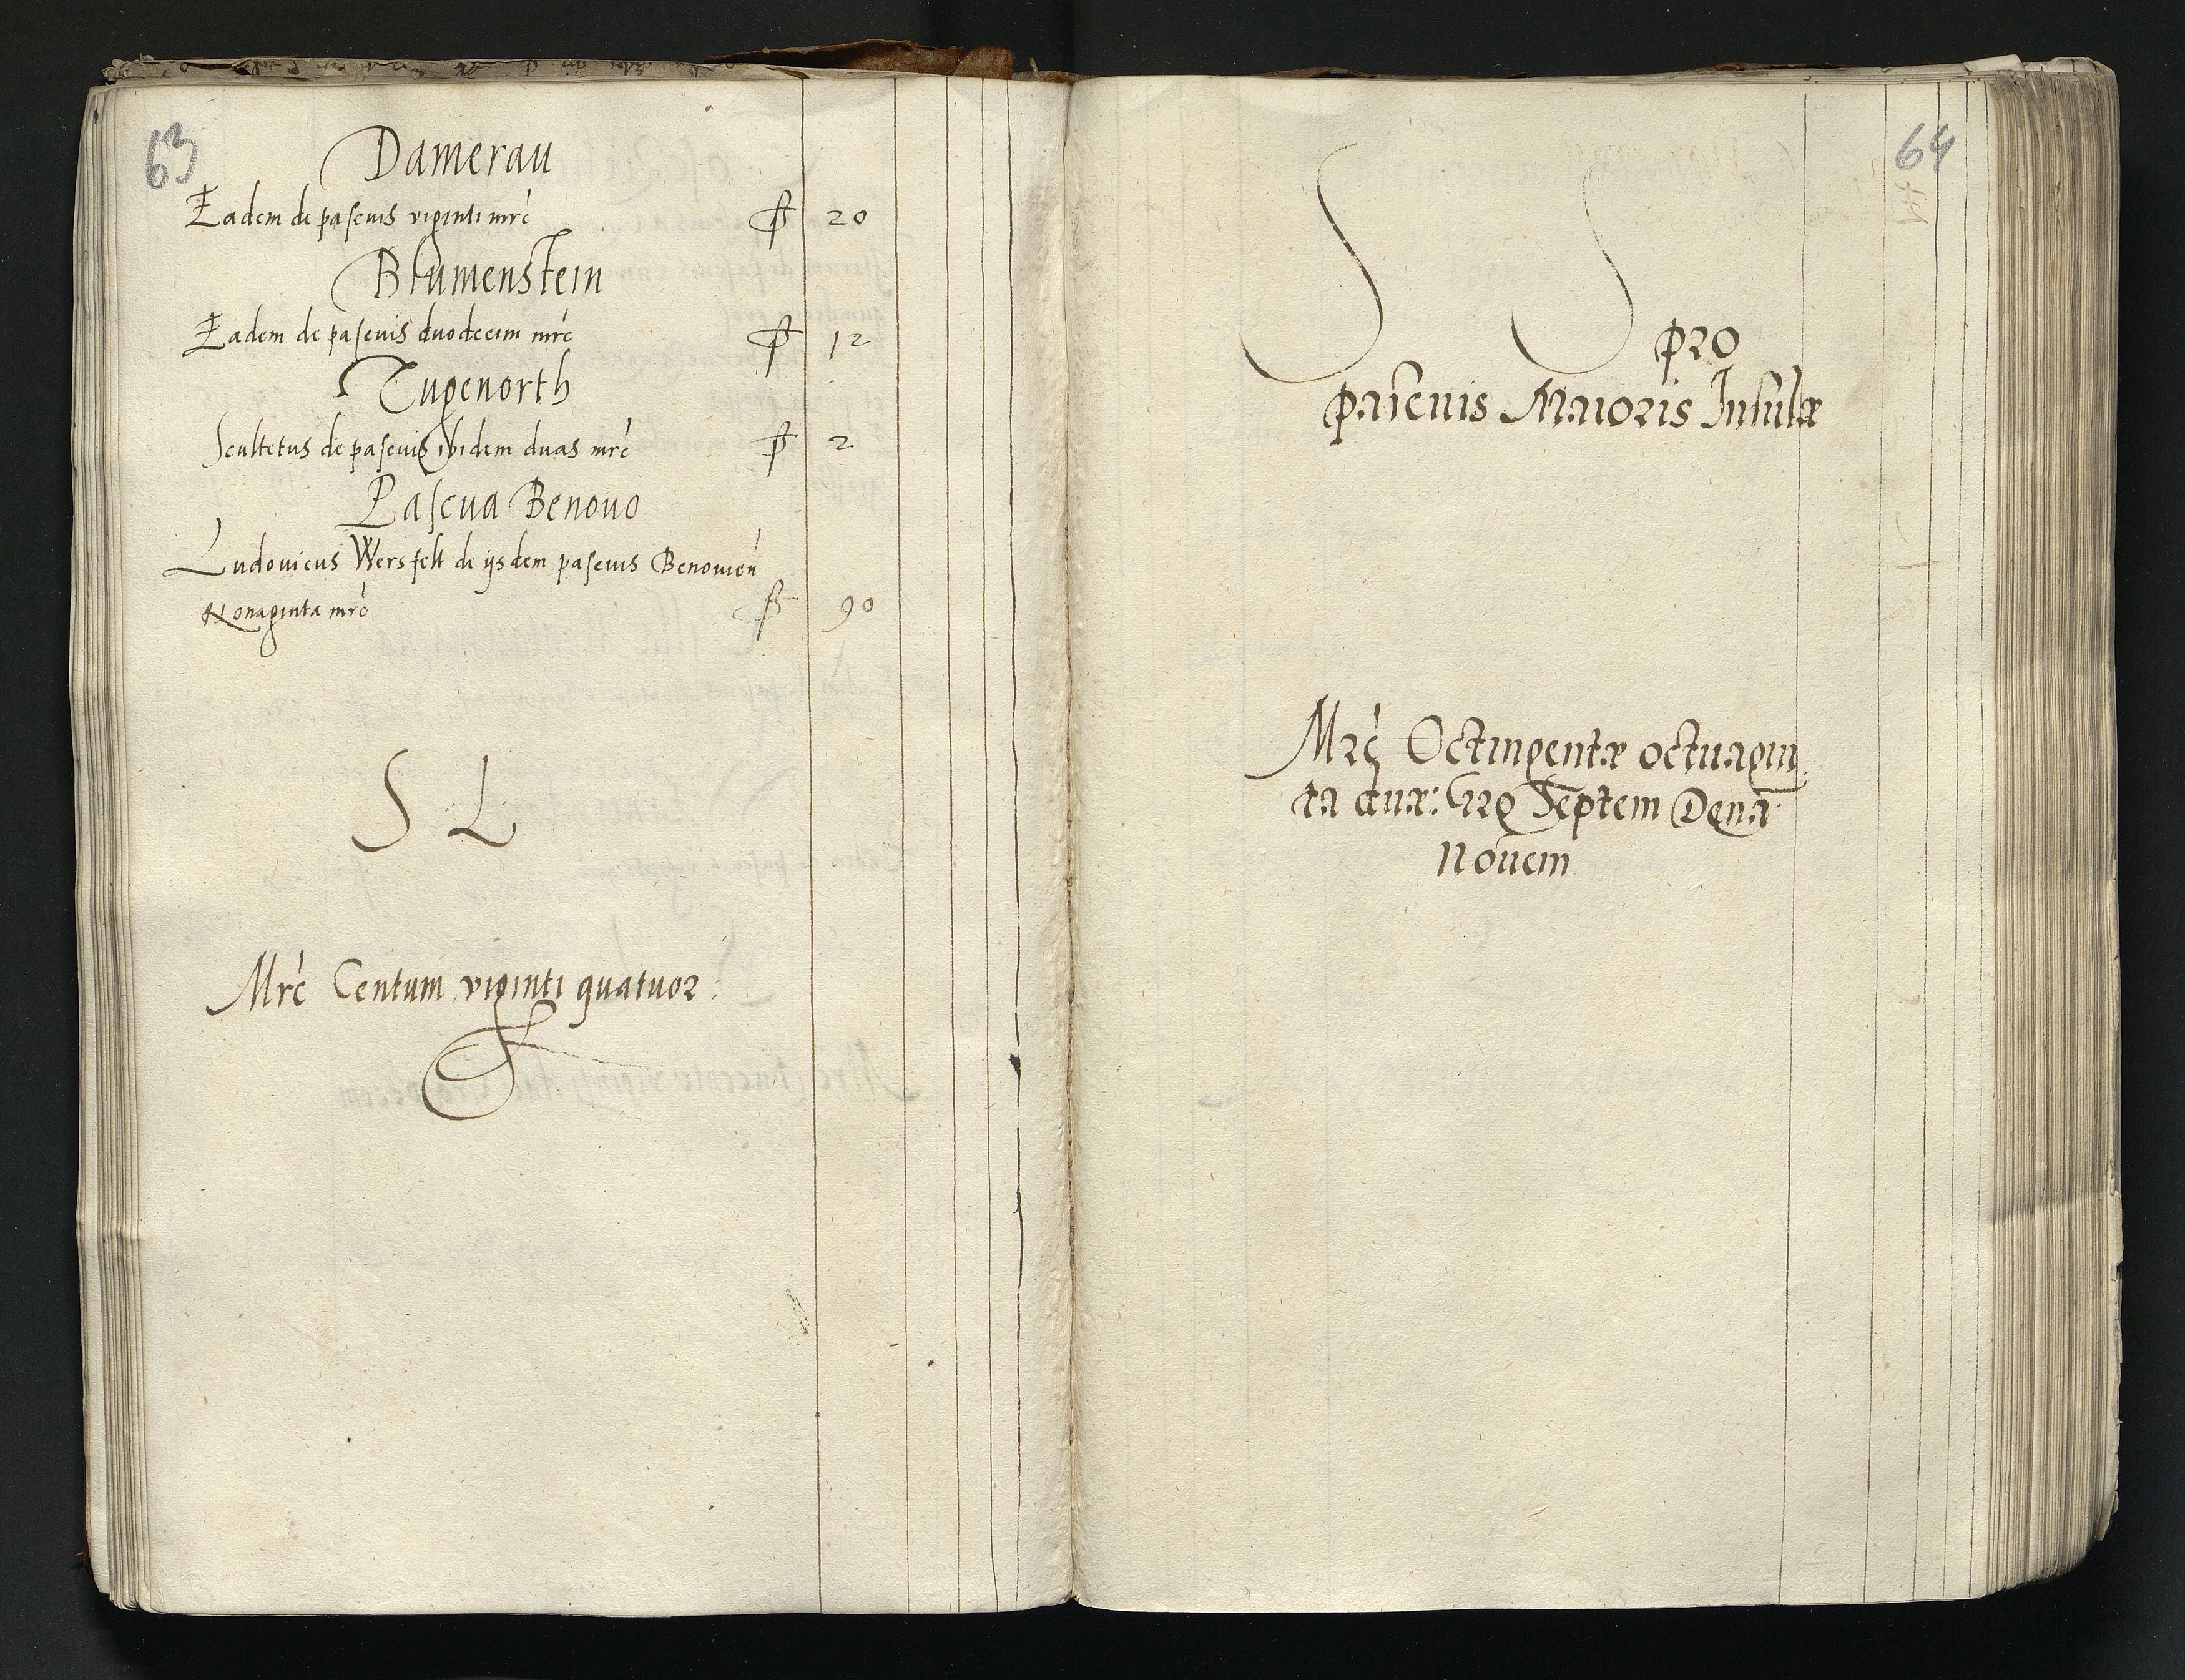 63
Damerau
Eadem de pascuis viginti mrc 20
Blumenstein
Eadem de pascuis duodecim mrc 12
Tugenorth
Scultetus de pascuis ibidem duas mrc 2
Pascua Benouo
Ludouicus Wersfelt de ijsdem pascuis Benouien
Nonaginta mrc 90
S L
Mrc Centum viginti quatuor
64
S S
pro
pascuis Maioris Insulæ
Mrc Octingentæ octuagin
ta duæ: gro Septem Dena
Nouem